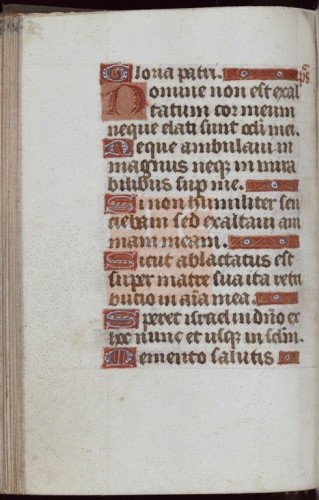 Gloria patri. ps
Domine non est exal
tatum cor meum
neque elati sunt oculi mei.
Neque ambulavi in
magnus neq; in mira
bilibus sup me.
Si non humiliter sen
ciebam sed exaltavi ani
mam meam.
Sicut ablactatus est
super matre sua ita retri
bucio in aīa mea.
Speret israel in dño ex
hoc nunc et usq; in sclm.
Memento salutis